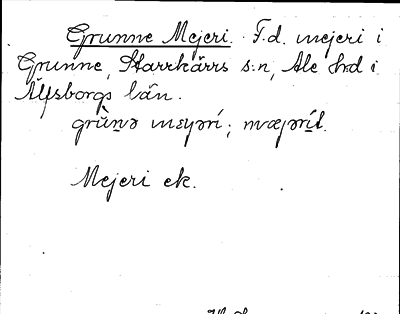 Grunne Mejeri. F.d. mejeri i
Grunne, Starrkärrs s:n, Ale hd i
Älfsborgs län.
grùnə mejərí; mæjərít.
Mejeri ek.